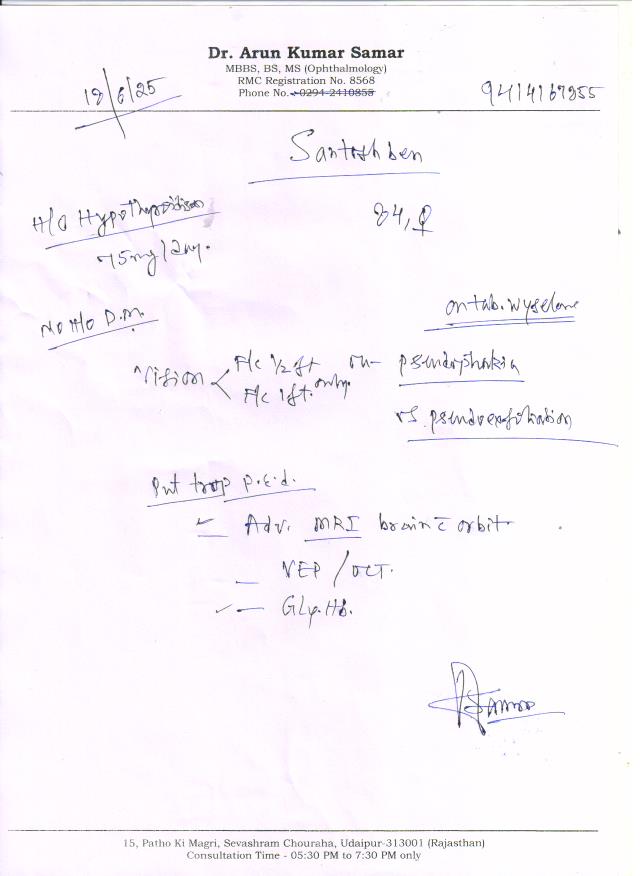 Dr. Arun Kumar Samar
MBBS, BS, MS (Ophthalmology)
RMC Registration No. 8568
Phone No. 0294-2410855
18/6/25
9414167855
Santosh ben
H/o Hypothyroidism
84, ♀
75mg/
No H/o D.M.
on tab. wyselone
Vision < F/c 1/2 ft
F/c 1 ft. only.
pseudophakia
pseudoexfoliation
Put trop
Adv. MRI brain c̄ orbit.
VEP / OCT.
Gly. Hb.
15, Patho Ki Magri, Sevashram Chouraha, Udaipur-313001 (Rajasthan)
Consultation Time - 05:30 PM to 7:30 PM only